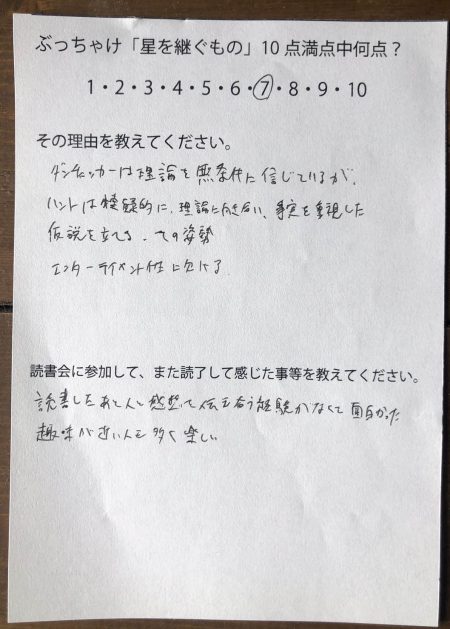 ぶっちゃけ「星を継ぐもの」10 点満点中何点？
1・2・3・4・5・6・7・8・9・10
その理由を教えてください。
ダンチェッカーは理論を無条件に信じているが、
ハントは懐疑的に、理論に向き合い、事実を重視した
仮説を立てる、その姿勢
エンターテイメント性に欠ける
読書会に参加して、また読了して感じた事等を教えてください。
読書したあと人と感想を伝え合う経験がなくて面白かった
趣味が近い人も多く楽しい